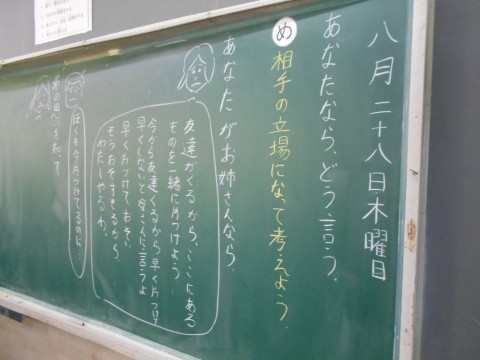 八月二十八日木曜日
あなたなら、どう言う。
め 相手の立場になって考えよう。
あなたがお姉さんなら、
友達がくるから、ここにある
ものを一緒に片づけよう。
今から友達くるから早く片づけて
早くしないと母さんに言うよ
早く片づけて、おそい、
もうおそすぎるから、
わたしやるわ。
ぼくも今片づけてるのに…